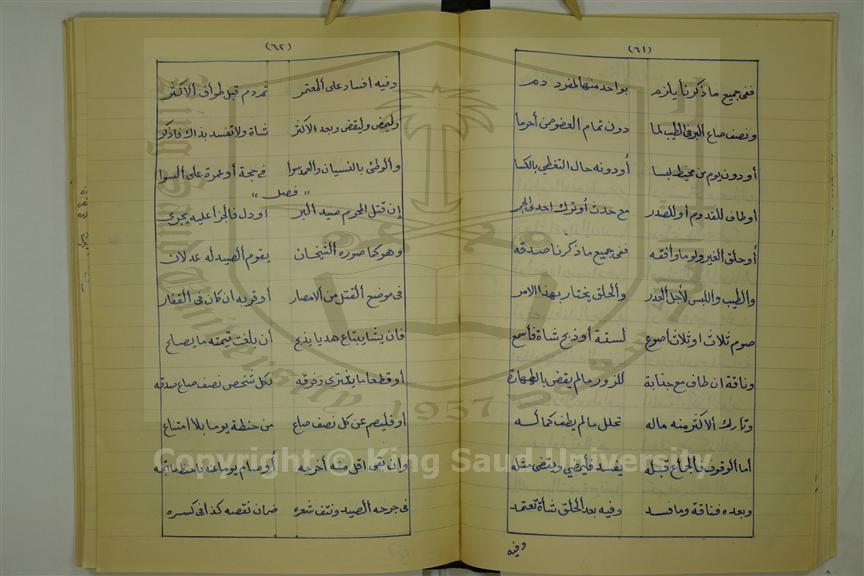 (٦١)
ففى جميع ما ذكرنا يلزم بواحد منها لمفرد دم
ونصف صاع البر فى الطيب لما دون تمام العضو من أحرما
أو دون يوم من محيط لبسا أو دونه حال التغطي بالكسا
أو طاف للقدوم أو للصدر مع حدث أو ترك احدى الجمر
أو حلق الغير ولو ما وافقه ففى جميع ما ذكرنا صدقه
والطيب واللبس لأجل العذر والحلق يختار بهذا الامر
صوم ثلاث او ثلاث أصوع لستة أو ذبح شاة فاسمع
وناقة ان طاف مع جنابة للزور ما لم يقض بالطهارة
وتارك الاكثر منه ماله تحلل ما لم يطف كماله
أما الوقوف فالجماع قبله يفسد فليمضي ويقضى مثله
وبعده فناقة وما فسد وفيه بعد الحلق شاة تعتمد
وفيه
(٦٢)
وفيه افساد على المعتمر ثم دم قبل طواف الأكثر
وليمض وليقض وبعد الاكثر شاة ولا تفسد بذاك فاذكر
والوطئ بالنسيان والعمد سوا فى حجة أو عمرة على السوا
" فصل "
إن قتل المحرم صيد البر او دل فالجزا عليه يجرى
وهو كما صوره الشيخان يقوم الصيد له عدلان
فى موضع القتل من الامصار أو قربه ان كان فى القفار
فان يشا يبتاع هديا يذبح أن بلغت قيمته ما يصلح
أو قطعاما يشترى وفرقه لكل شخص نصف صاع صدقه
أو فليصم عن كل نصف صاع من حنطة يوما بلا امتناع
وان بقى اقل منه أخرجه أو صام يوما عنه فاحفظ منهجه
فى جرحه الصيد ونتف شعره ضمان نقصه كذا فى كسره
Copyright © King Saud University
1957